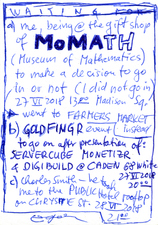 WAITING FOR
a) me, being @ the gift shop
of
MoMATH
(Museum of Mathematics)
to make a decision to go
in or not (I did not go in
27 VI 2018 Madison Sq.
went to FARMERS MARKET
b) GOLDFINGR event (instead
to go on after presentation of:
SERVERCUBE MONETIZR
& DIGIBUILD @ CADEN 68 White
27 VI 2018
20:00
c) Charles Smith - he took
me to the PUBLIC Hotel rooftop
on CHRYSTIE St. 28 VI 2018
21:00